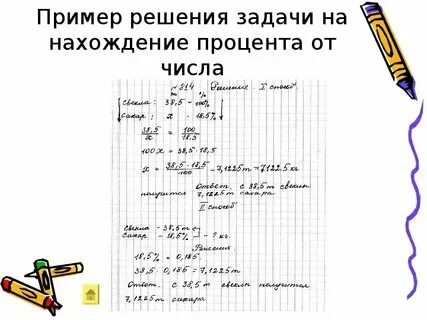 Пример решения задачи на
нахождение процента от
числа
№ 514 Решение. I способ.
т %
свекла: 38,5 – 100%
сахар: x – 18,5%
38,5/x = 100/18,5
100x = 38,5 · 18,5
x = 38,5 · 18,5/100 = 7,1225 т = 7122,5 кг
Ответ. с 38,5 т свеклы
получится 7,1225 т сахара
II способ
свекла – 38,5 т
сахар – 18,5% – ? кг.
Решение.
18,5% = 0,185
38,5 · 0,185 = 7,1225 т
Ответ. с 38,5 т свеклы получится
7,1225 т сахара